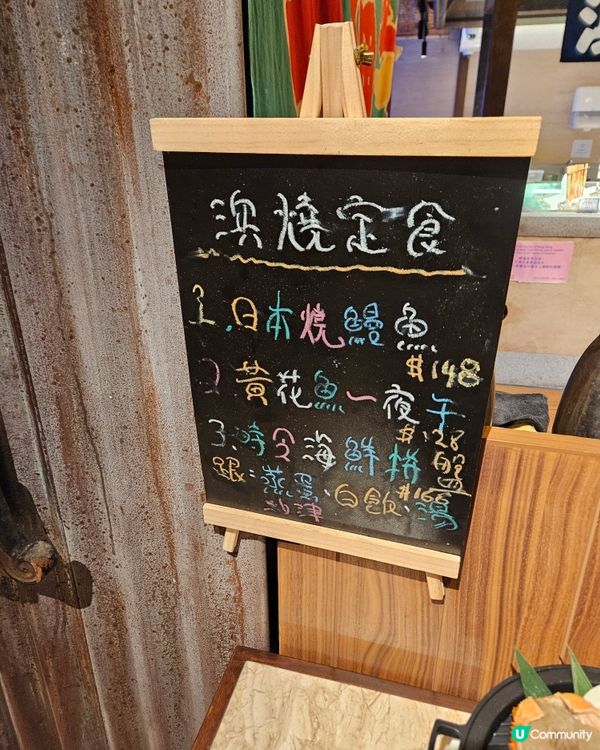 浜燒定食
1.日本燒鰻魚
$148
2 黃花魚一夜干
$128
3.時令海鮮拼盤
$168
跟:蒸蛋、白飯、湯
沙津
U Community